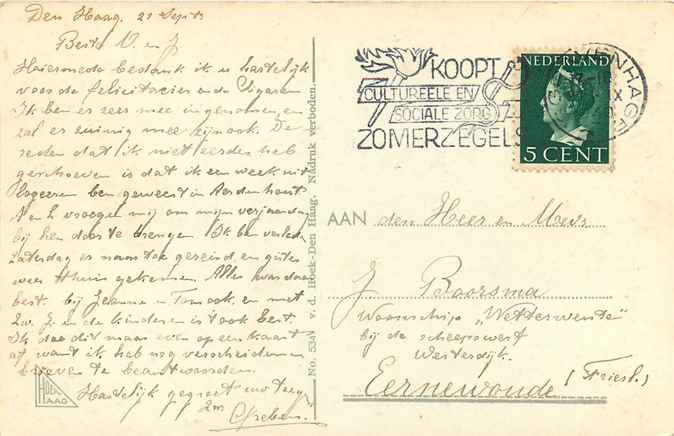 Den Haag, 21 Sept.
Beste V. en J.
Hiermede bedank ik u hartelijk
voor de felicitaties en de sigaren
Ik ben er zeer mee ingenomen, en
zal er zuinig mee zijn ook. De
reden dat ik niet eerder heb
geschreven is dat ik een week uit
logeeren ben geweest in Aerdenhout.
vroegen mij om mijn verjaardag
bij hen door te brengen. Ik ben verleden
Zaterdag er naar toe gereisd, en gister
weer thuis gekomen. Alles was daar
best. bij Jeanne en Tom ook, en met
en de kinderen is 't ook best.
Ik doe dit maar even op een kaart
af want ik heb nog verscheidene
brieven te beantwoorden.
Hartelijk gegroet van
No. 53A v. d. Hoek-Den Haag. Nadruk verboden.
HOEK
HAAG
KOOPT
CULTUREELE EN
SOCIALE ZORG
ZOMERZEGELS
NEDERLAND
5 CENT
AAN den Heer en Mevr.
J. Boorsma
Woonschip „Wetterwente”
bij de scheepswerf
Westerdijk.
Eernewoude (Friesl.)